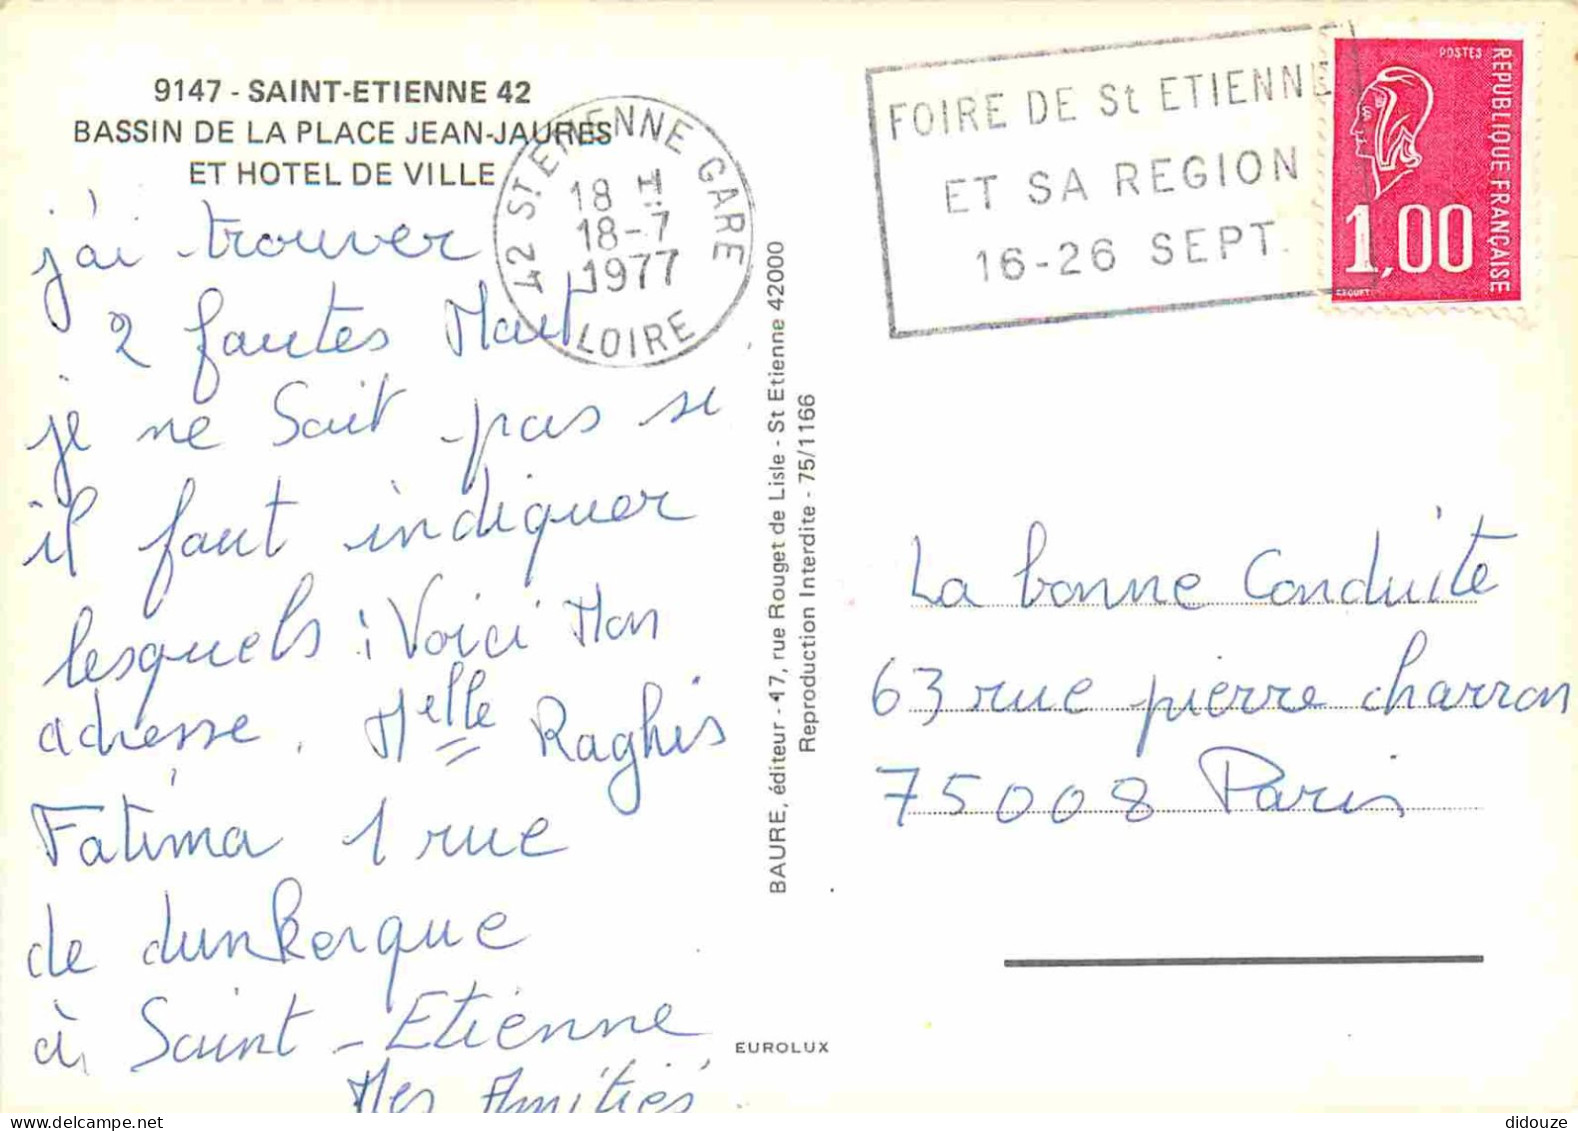 9147 - SAINT-ETIENNE 42
BASSIN DE LA PLACE JEAN-JAURES
ET HOTEL DE VILLE
j'ai trouver
2 fautes Mait
je ne Sait pas si
il faut indiquer
lesquels : Voici Mon
adresse. Melle Raghis
Fatima 1 rue
de dunkerque
à Saint-Etienne
Mes Amitiés
42 ST ETIENNE GARE
18 H
18-7
1977
LOIRE
FOIRE DE St ETIENNE
ET SA REGION
16-26 SEPT.
POSTES
REPUBLIQUE FRANÇAISE
1,00
BAURE, éditeur - 17, rue Rouget de Lisle - St Etienne 42000
Reproduction Interdite - 75/1166
La bonne Conduite
63 rue pierre charron
75008 Paris
EUROLUX
didouze